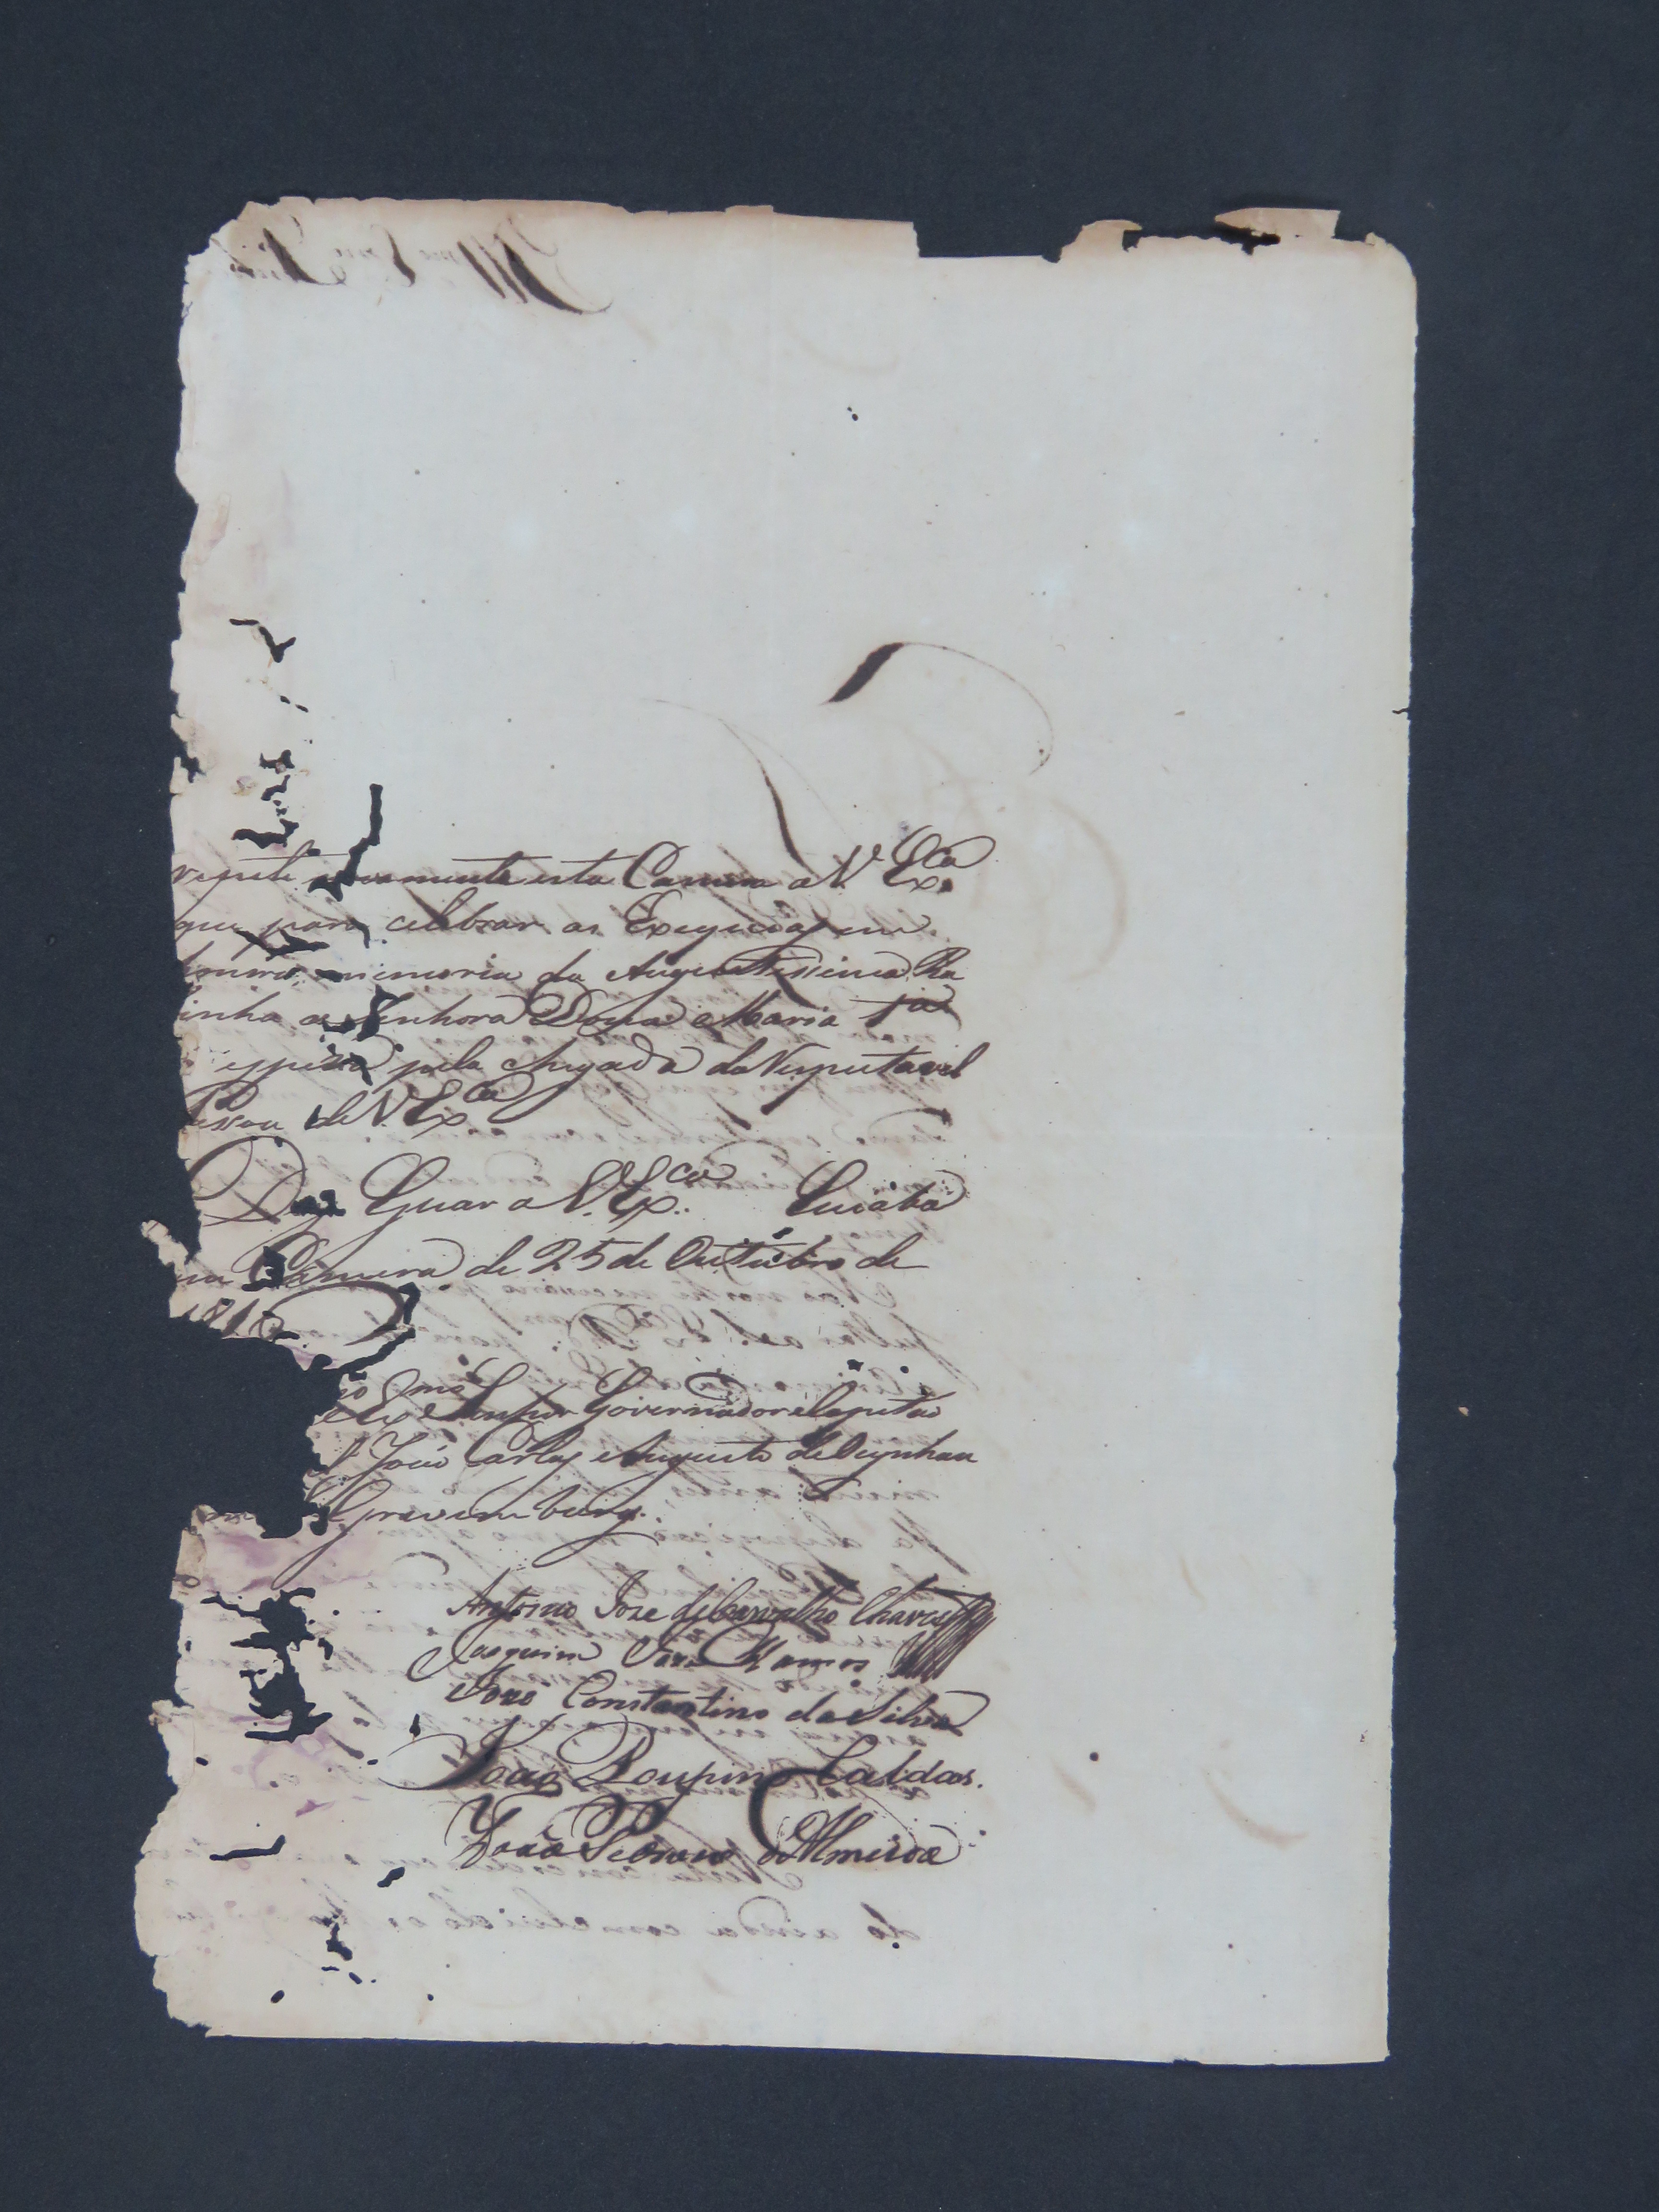 repete novamente esta Camera a V. Ex.ca
que para celebrar as Exequias em
memoria da Augustissima Ra
inha a Senhora Dona Maria 1a
espera pela chegada da Respeitavel
Pessoa de V. Ex.ca
Ds. Guar a V. Ex.ca Cuiabá
em Camera de 25 de Outubro de
181
e Ex.mo Senhor Governador e Capitão
João Carlos Augusto de Oeynhau
Gravemberg.
Antonio Joze de Carvalho Chaves
Joaquim Joze Ramos
Joze Constantino da Silva
João Poupino Caldas.
João de Almeida